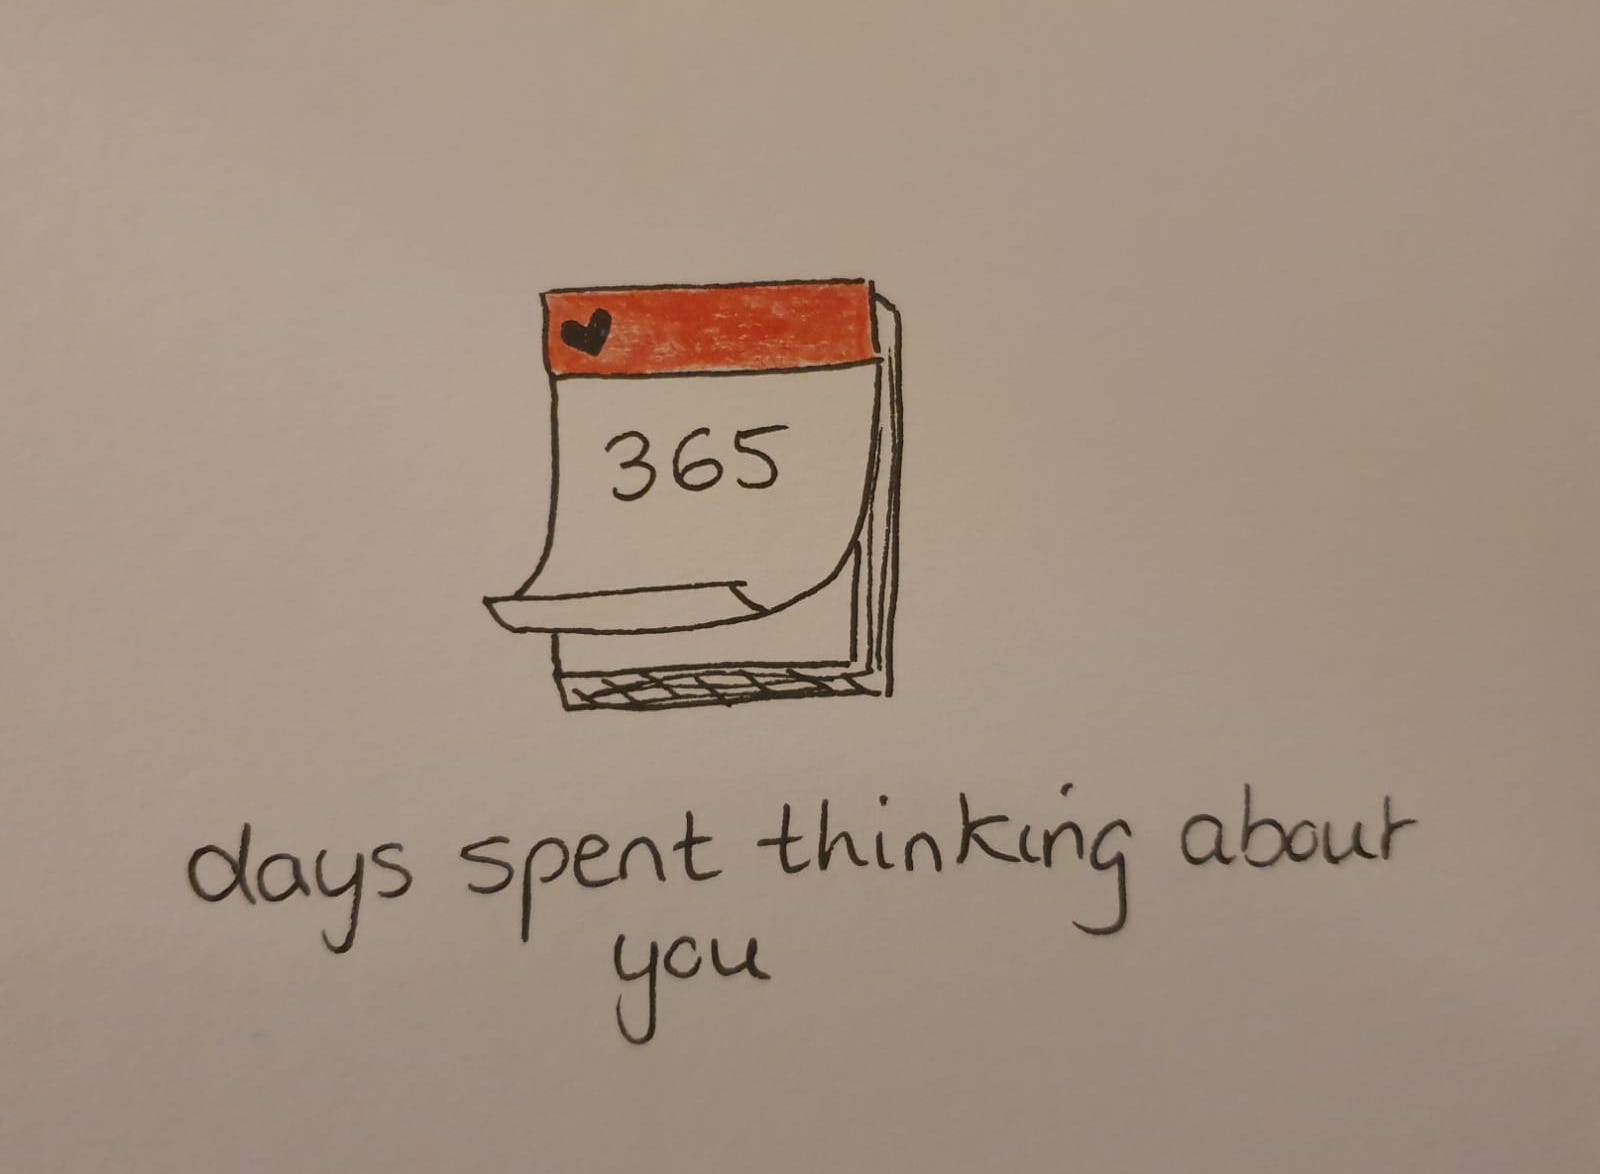 365
days spent thinking about
you